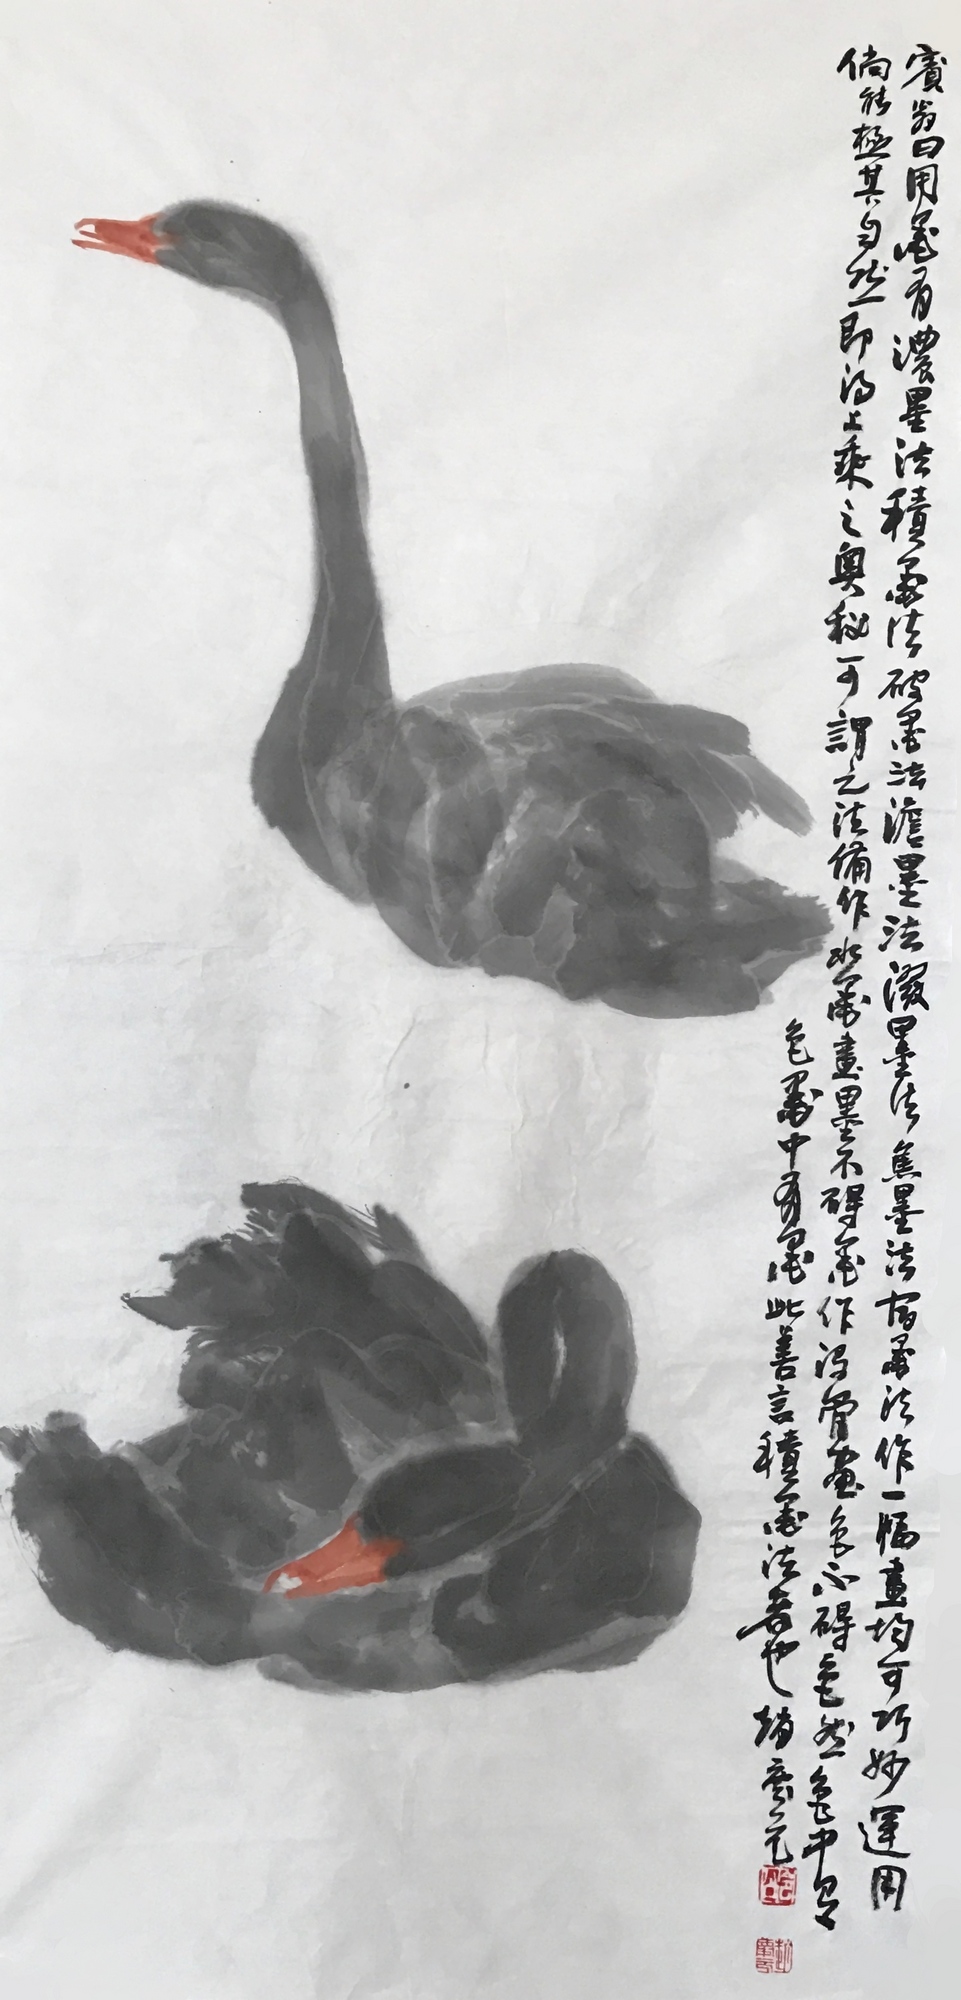 賓翁曰用墨有濃墨法積墨法破墨法澹墨法潑墨法焦墨法宿墨法作一幅畫均可巧妙運用
倘能極其自然即得上乘之奧秘可謂之法備作水墨畫墨不碍墨作沒骨畫色不碍色然色中有
色墨中有墨此善言積墨法者也趙